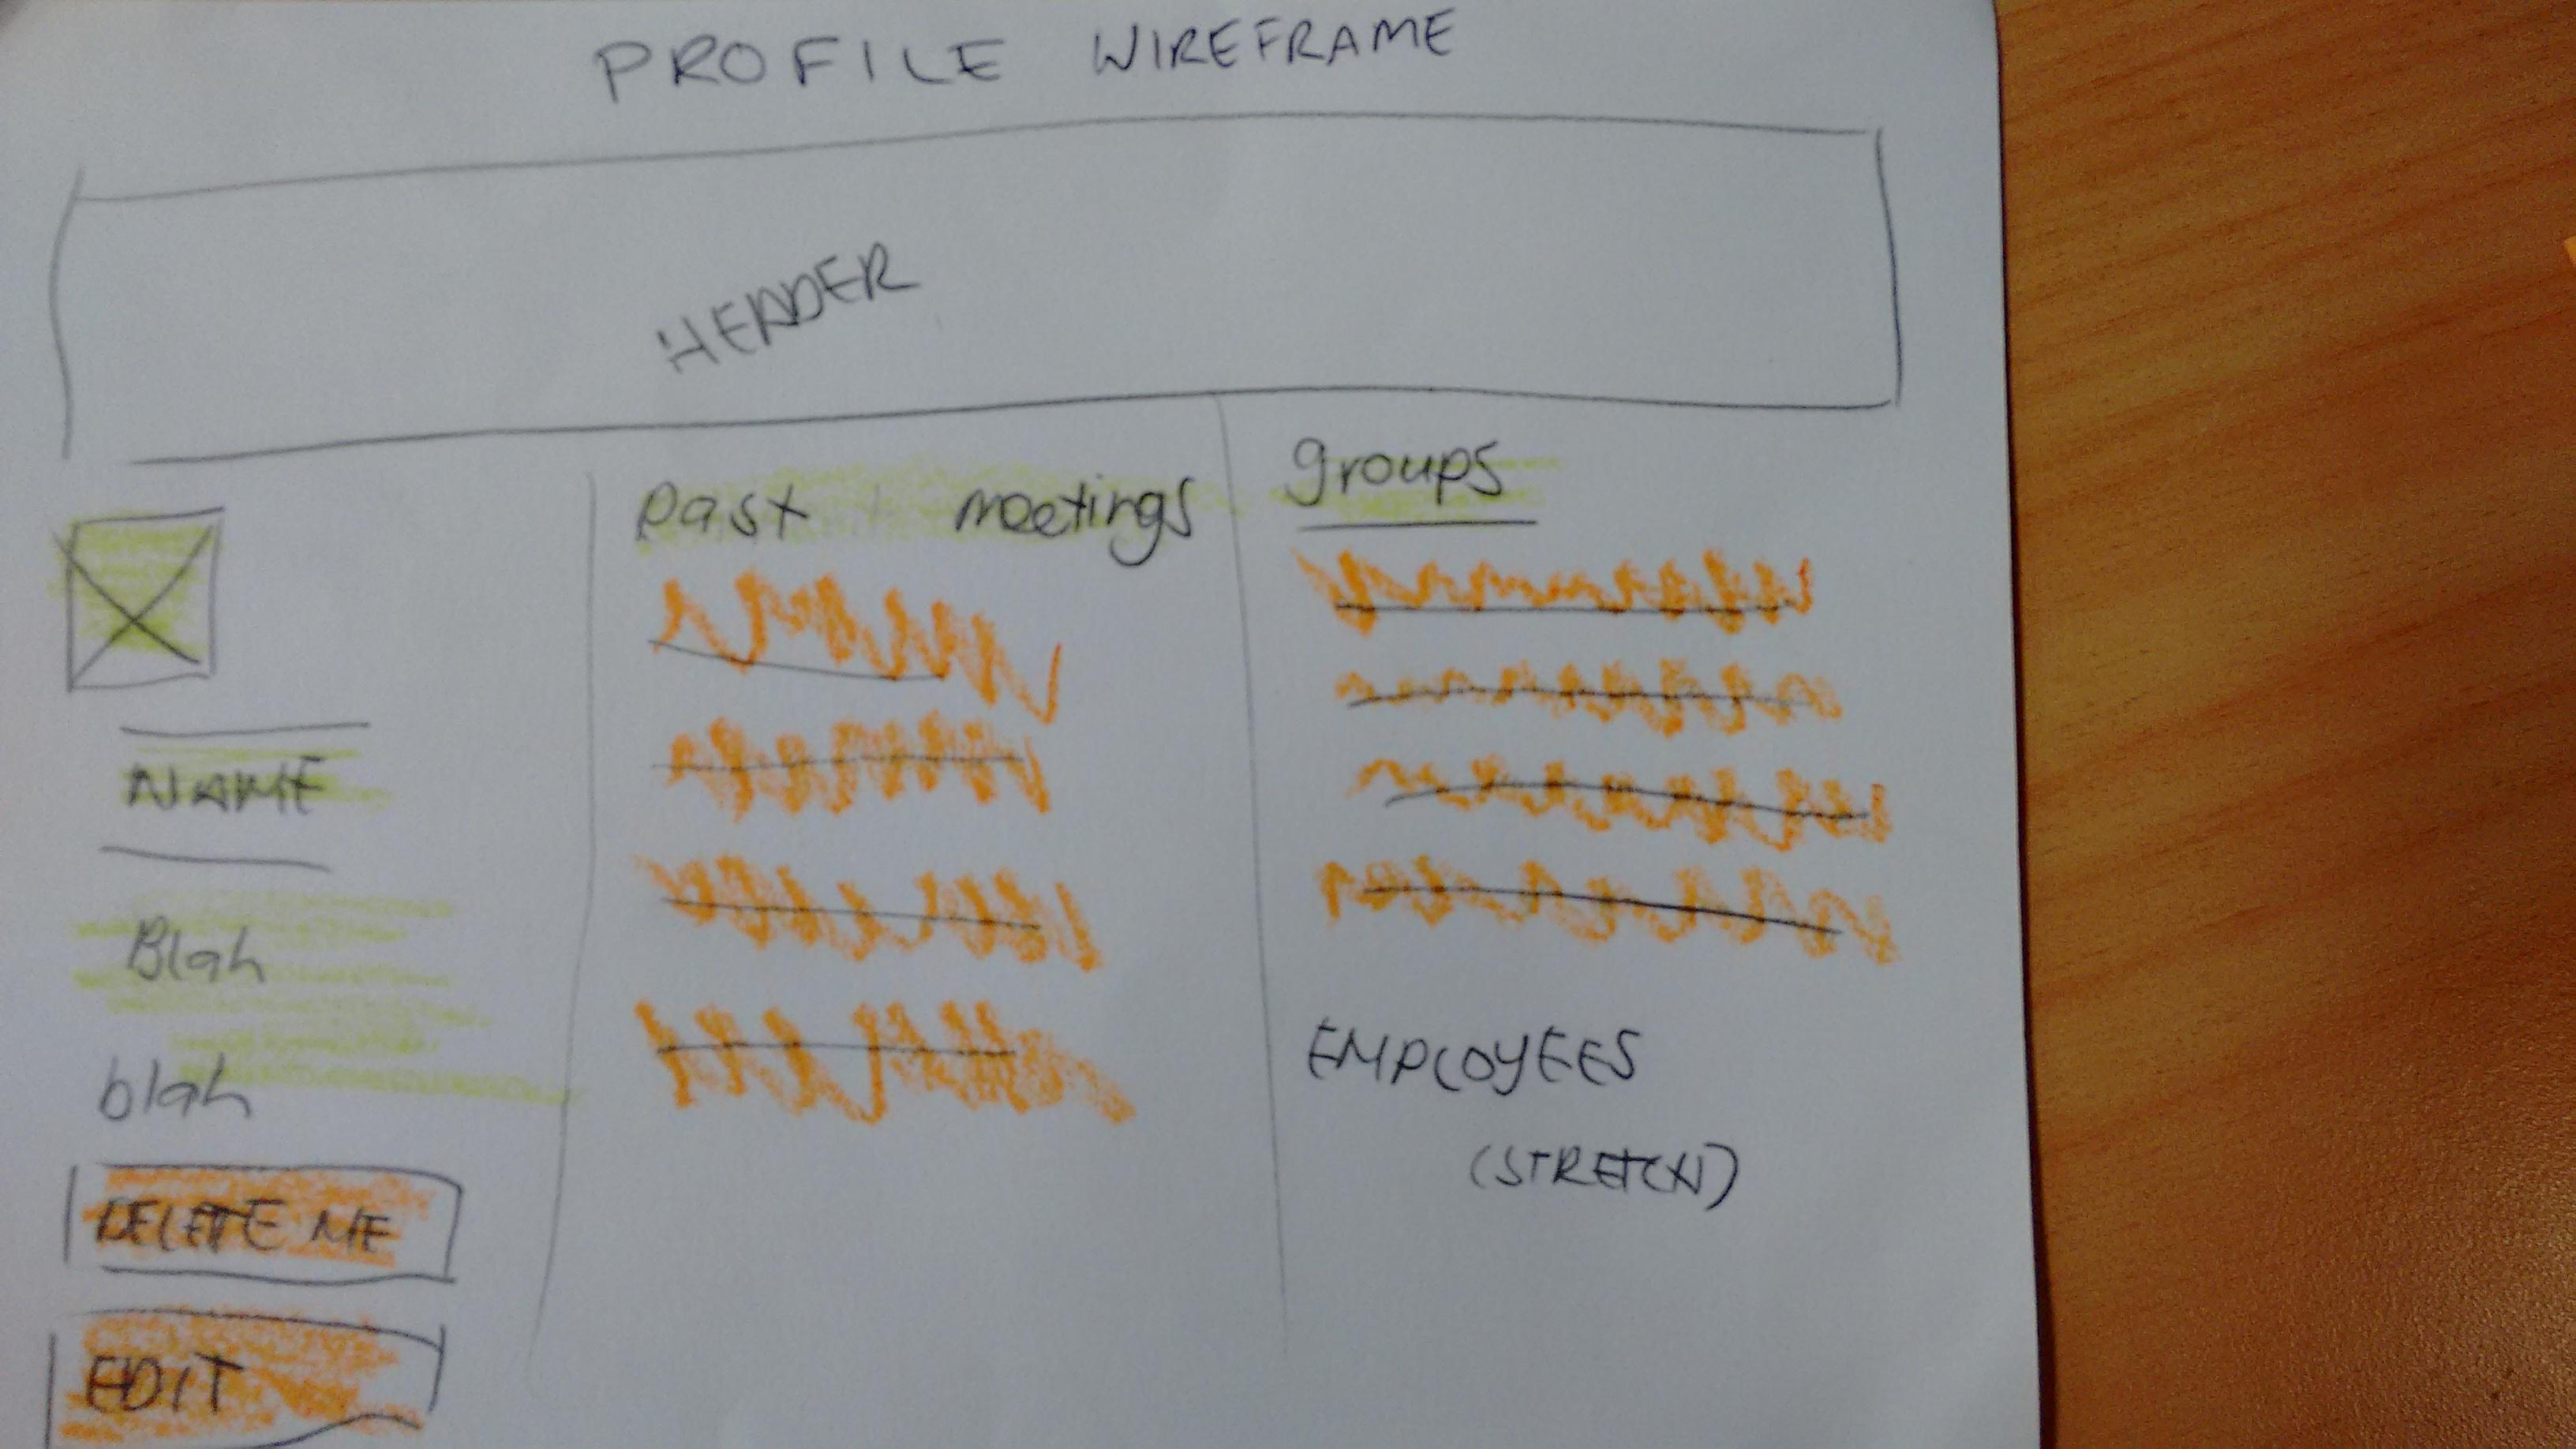 PROFILE WIREFRAME
HEADER
NAME
Blah
blah
DELETE ME
EDIT
past meetings
groups
EMPLOYEES
(STRETCH)